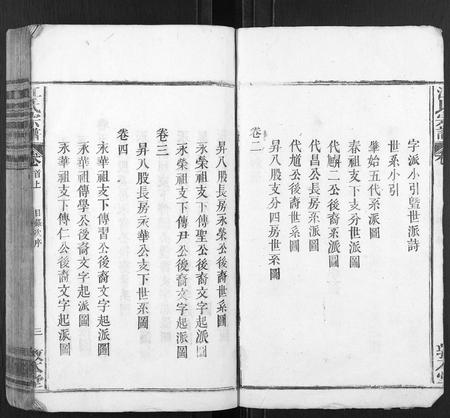 字派小引暨世派詩
世系小引
肇始五代系派圖
春祖支下支分世派圖
代麟二公後裔系派圖
代昌公長房系派圖
代尴公後裔世系圖
昇八股支分四房世系圖
卷二
昇八股長房永榮公後裔世系圖
永榮祖支下傳聖公後裔文字起派圖
永榮祖支下傳尹公後裔文字起派圖
卷三
昇八股長房永華公支下世系圖
卷四
永華祖支下傳習公後裔文字起派圖
永華祖支下傳學公後裔文字起派圖
永華祖支下傳仁公後裔文字起派圖
江氏宗譜
卷首上
目錄次序
三
敦本堂